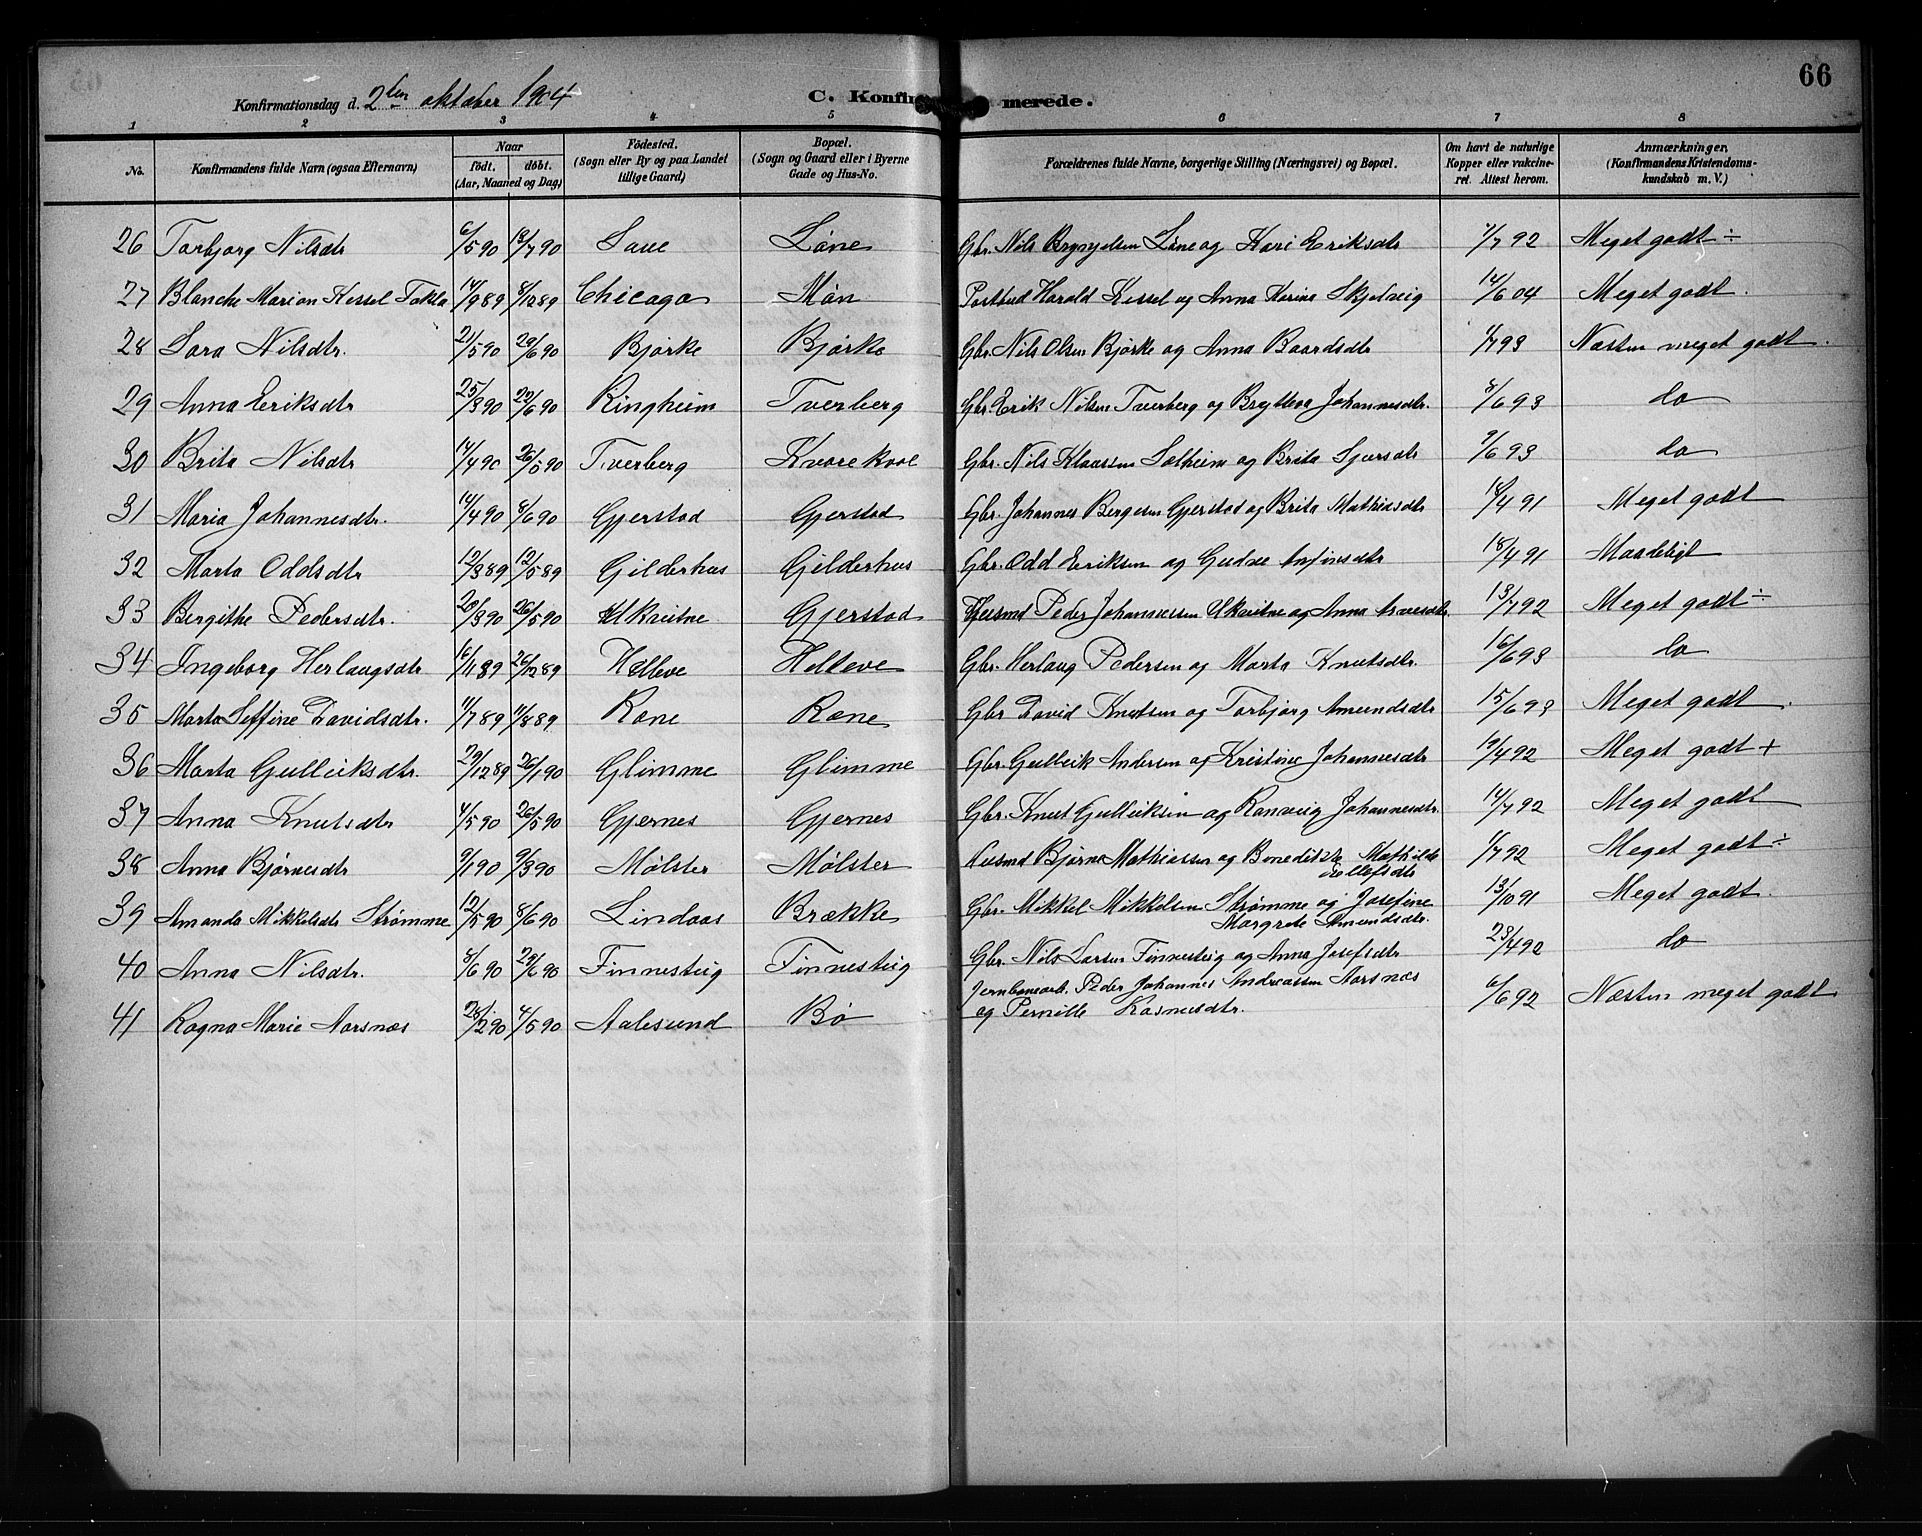 66
Konfirmationsdag d. 2den oktober 1904 C. Konfirmerede.
1 2 3 4 5 6 7 8
No. Konfirmandens fulde Navn (ogsaa Efternavn) Naar født. døbt. (Aar, Maaned og Dag) Fødested. (Sogn eller By og paa Landet tillige Gaard) Bopæl. (Sogn og Gaard eller i Byerne Gade og Hus-No. Forældrenes fulde Navne, borgerlige Stilling (Næringsvei) og Bopæl. Om havt de naturlige Kopper eller vakcineret. Attest herom. Anmærkninger, (Konfirmandens Kristendomskundskab m. V.)
26 Torbjorg Nilsdtr 6/5 90 13/7 90 Saue Løne Gbr. Nils Brynjelsen Løne og Kari Eriksdtr /7 92 Meget godt ÷
27 Blanche Marion Kessel Takla 14/9 89 8/12 89 Chicago Møn Postbud Harold Kessel og Anna Karina Skjelveig 14/6 04 Meget godt.
28 Sara Nilsdtr. 21/5 90 29/6 90 Bjørke Bjørke Gbr. Nils Olsen Bjørke og Anna Baardsdtr /7 93 Næsten meget godt.
29 Anna Eriksdtr 25/3 90 22/6 90 Ringheim Tverberg Gbr. Erik Nilsen Tverberg og Brytteva Johannesdtr. 8/6 93 do
30 Brita Nilsdtr 14/4 90 26/5 90 Tverberg Kvarekval Gbr. Nils Klaasen Solheim og Brita Sjursdtr 9/6 93 do
31 Maria Johannesdtr. 14/4 90 8/6 90 Gjerstad Gjerstad Gbr. Johannes Bergesen Gjerstad og Brita Mathiasdtr 18/4 91 Meget godt
32 Marta Oddsdtr 12/3 89 12/5 89 Gilderhus Gilderhus Gbr. Odd Eriksen og Gudve Anfinsdtr 18/4 91 Maadeligt
33 Bergithe Pedersdtr. 20/3 90 26/5 90 Ukvitne Gjerstad Husmd Peder Johannessen Ukvitne og Anna Arvesdtr. 13/7 92 Meget godt ÷
34 Ingeborg Herlaugsdtr 16/11 89 26/12 89 Helleve Helleve Gbr. Herlaug Pedersen og Marta Knutsdtr. 16/6 93 do
35 Marta Seffine Davidsdtr. 11/7 89 11/8 89 Rene Rene Gbr David Knutsen og Torbjorg Amundsdtr 15/6 93 Meget godt.
36 Marta Gulleiksdtr. 29/12 89 26/1 90 Glimme Glimme Gbr. Gulleik Andersen og Kristine Johannesdtr 19/4 92 Meget godt +
37 Anna Knutsdtr 4/5 90 26/5 90 Gjernes Gjernes Gbr. Knut Gulleiksen og Ranveig Johannesdtr. 14/7 92 Meget godt
38 Anna Bjørnesdtr 9/1 90 9/3 90 Mølster Mølster Husmd Bjørne Mathiassen og Benedikte Mathilde Dellefsdtr /7 92 Meget godt ÷
39 Amanda Mikkelsdtr Strømme 12/5 90 8/6 90 Lindaas Brække Gbr. Mikkel Mikkelsen Strømme og Josefine Margrete Amundsdtr. 13/10 91 Meget godt.
40 Anna Nilsdtr. 8/6 90 29/6 90 Finnesteig Finnesteig Gbr. Nils Larsen Finnesteig og Anna Josefsdtr 23/4 92 do
41 Ragna Marie Aarsnæs 28/2 90 4/5 90 Aalesund Bø Jernbanearb. Peder Johannes Andreassen Aarsnæs og Pernille Rasmusdtr. 6/6 92 Næsten meget godt